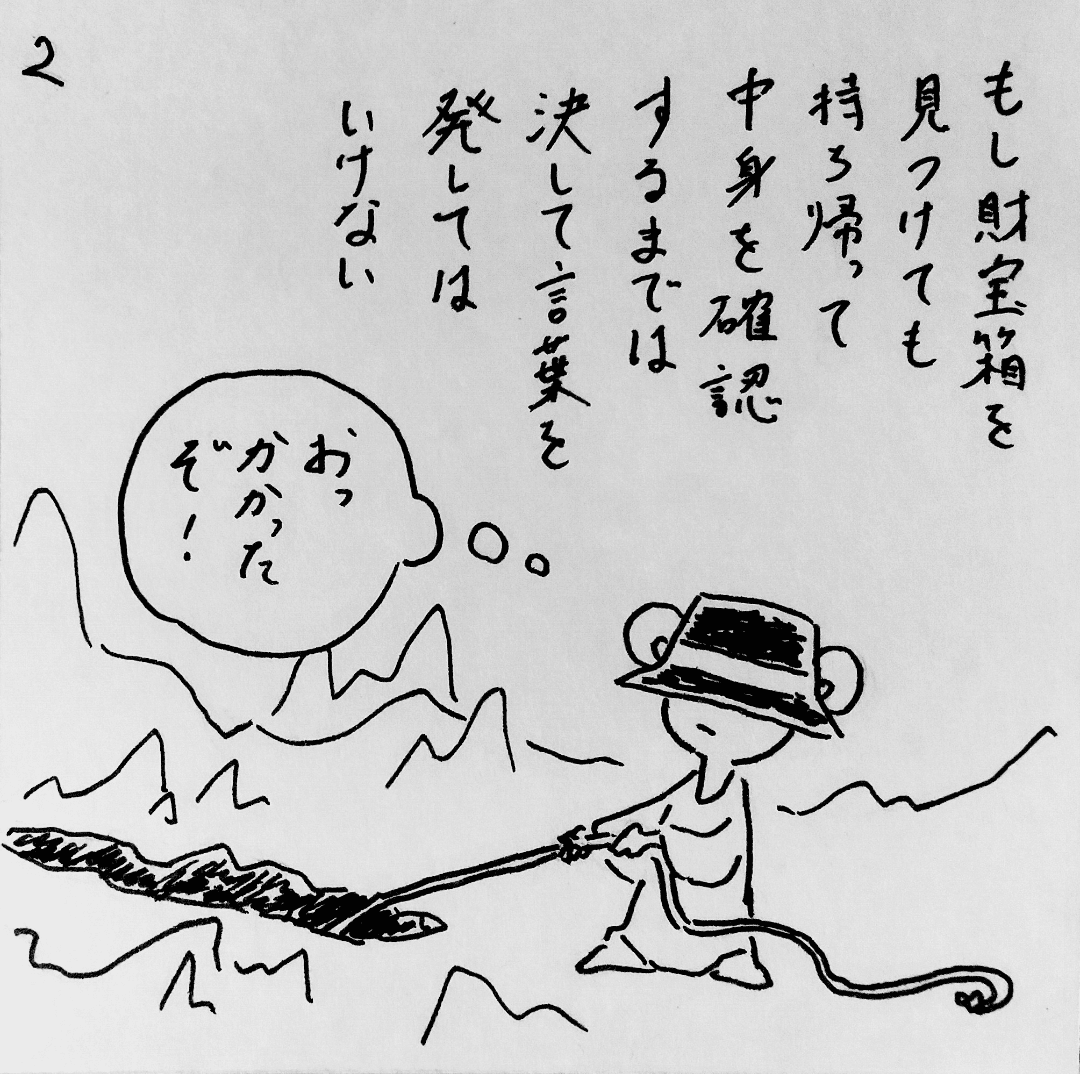 2
もし財宝箱を
見つけても
持ち帰って
中身を確認
するまでは
決して言葉を
発しては
いけない
おっ
かかった
ぞ!